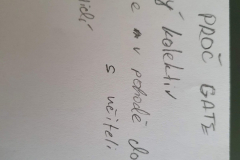 PROČ GATE
ý kolektiv
e a v pohodě do
s učiteli